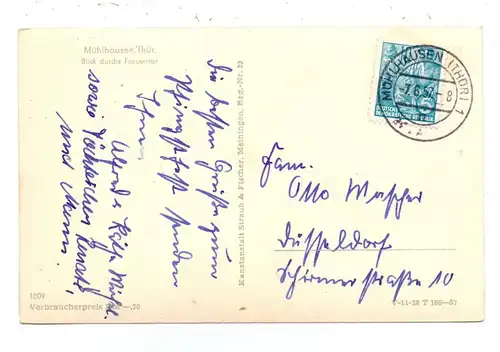 Mühlhausen/Thür.
Blick durchs Frauentor
Die besten Grüße zum
Pfingstfest senden
Ihnen
Alfred u. Käthe
sowie Töchterchen Renate
und
1009
Verbraucherpreis -,20
Kunstanstalt Straub & Fischer, Meiningen, Reg.-Nr. 23
MÜHLHAUSEN (THÜR) 1
7.6.57.-8
DEUTSCHE
DEMOKRATISCHE REPUBLIK
Fam.
Otto Wascher
Düsseldorf
Schirmerstraße 10
V-11-28 T 195-57